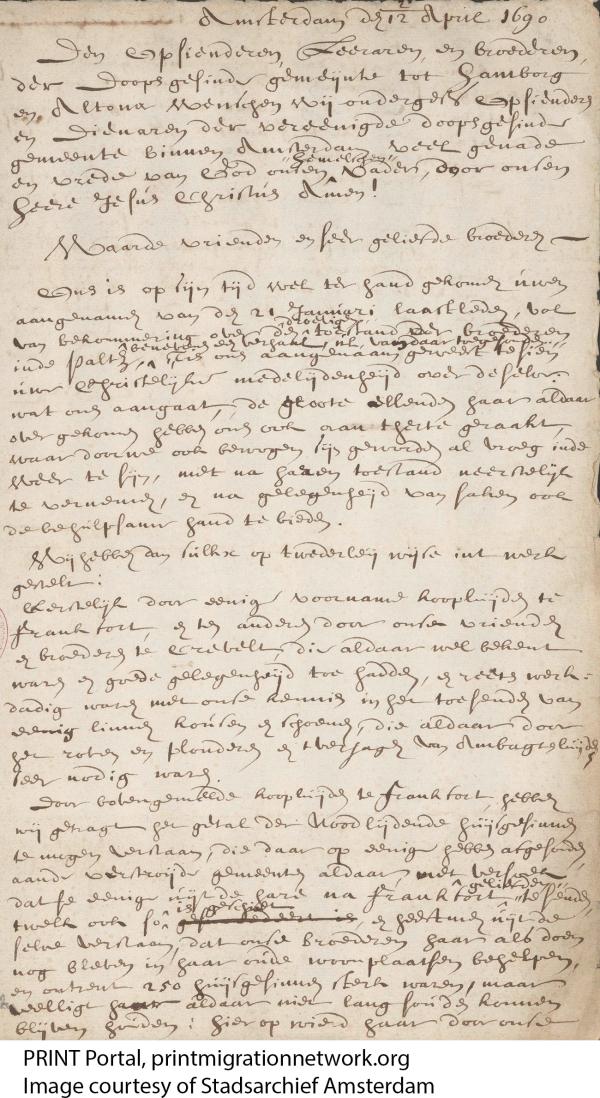 Amsterdam den 12 April 1690
Den Opsienderen, Leeraren, en broederen,
der Doopsgesinde gemeijnte tot Hamborg
en Altona Wenschen Wij ondergess. Opsienders
en Dienaren der vereenigde doopsgesinde
gemeente binnen Amsterdam, veel genade
en vrede van God onsen Hemelschen Vader, door onsen
Heere Jesús Christús Amen!
Waarde vrienden en seer geliefde broeders
Ons is op sijn tijd wel ter hand gekomen úwen
aangenamen van den 21 Januari laastleden, vol
van bekommering over den droevigen toestand der broederen
inde Paltz, benevens een verhaal, van daar toegesonden
úwe Christelijke medelijdenheijd over deselve.
wat ons aangaat, de groote ellenden haar aldaar
over gekomen hebben ons ook aan therte geraakt,
waar door we ook bewogen sijn geworden al vroeg inde
weer te sijn, met na haaren toestand neerstelijk
te vernemen, en na gelegenheijd van saken ook
de behulpsame hand te bieden.
Wij hebben dan sulkx op twederleij wijse int werk
gestelt:
Eerstelijk door eenige voorname kooplúijden te
Frankfort, en ten anderen door onse vrienden
en broederen te Crevelt, die aldaar wel bekent
waren en goede gelegenheijd toe hadden, en reets werk-
dadig waren met onse kennis in het toesenden van
eenig linnen kousen en schoenen, die aldaar door
het roven en plonderen en tverjagen van Ambagtslúijden
seer nodig waren.
Door bovengemelde kooplúijden te Frankfort, hebben
wij getragt het getal der Noodlijdende húijsgesinnen
te mogen verstaan, die daar op eenige hebben afgesonden
aande verstroijde gemeenten aldaar, met versoek,
dat se eenige uijt de hare na Frankfort geliefden te senden,
twelk ook so is geschiet, en heeftmen uijt de
selve verstaan, dat onse broederen haar als doen
nog bleven in haar oúde woonplaatsen behelpen,
en ontrent 250 húijsgesinnen sterk waren, maar
veelligt haar aldaar niet lang soúden konnen
blijven houden: hier op wierd haar door onse
PRINT Portal, printmigrationnetwork.org
Image courtesy of Stadsarchief Amsterdam